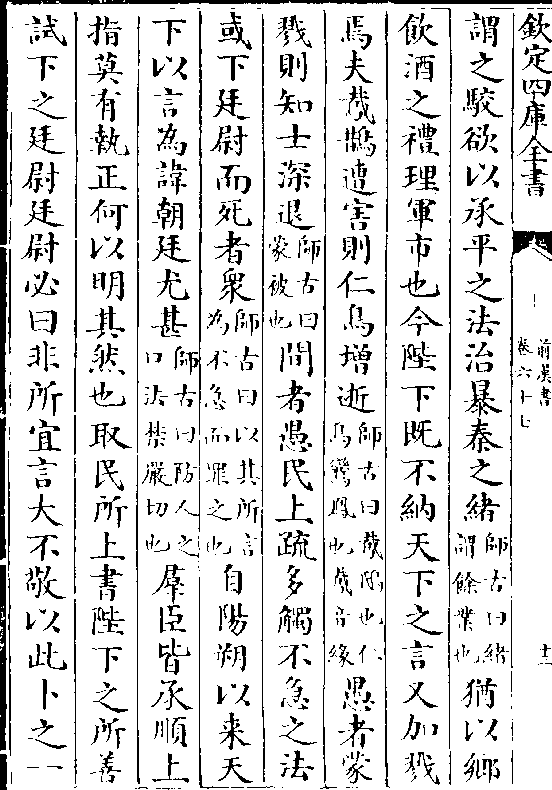 欽定四庫全書
前漢書
卷六十七
十二
謂之駮欲以承平之法治暴秦之緒師古曰緒謂餘業也猶以鄉
飲酒之禮理軍市也今陛下既不納天下之言又加戮
焉夫䳒鵲遭害則仁鳥增逝師古曰䳒鴟也仁鳥鸞鳳也䳒音緣愚者蒙
戮則知士深退師古曰蒙被也間者愚民上疏多觸不急之法
或下廷尉而死者衆師古曰以其所言為不急而罪之也自陽朔以来天
下以言為諱朝廷尤甚師古曰防人之口法禁嚴切也羣臣皆承順上
指莫有執正何以明其然也取民所上書陛下之所善
試下之廷尉廷尉必曰非所宜言大不敬以此卜之一